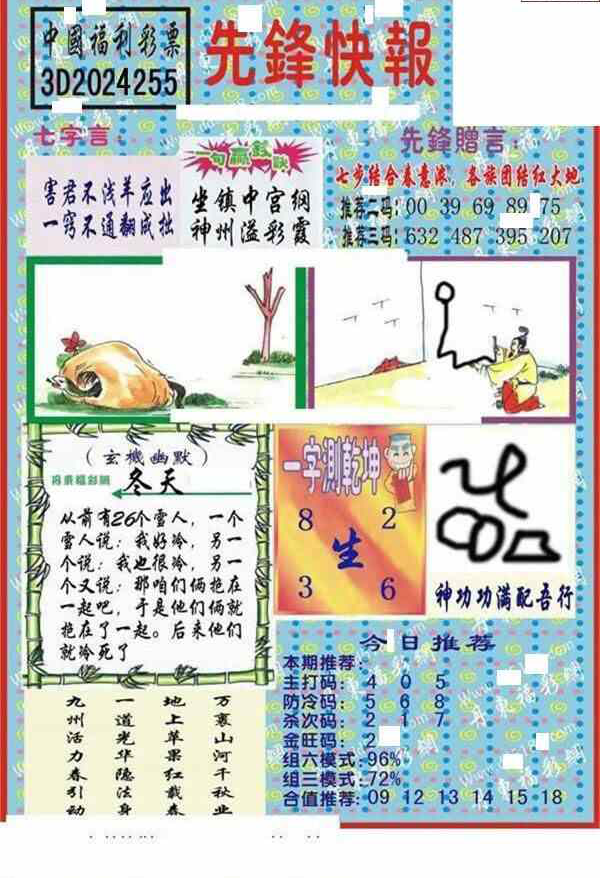 中國福利彩票
3D2024255
先鋒快報
七字言：
害君不浅羊应出
一窍不通翻成拙
一句贏彩訣
坐镇中宫網
神州溢彩霞
先鋒贈言：
七步结合春意浓，各族团结红大地
推荐二码：00 39 69 89 75
推荐三码：632 487 395 207
（玄機幽默）
丹東福彩網
冬天
从前有26个雪人，一个
雪人说：我好冷，另一
个说：我也很冷，另一
个又说：那咱们俩抱在
一起吧，于是他们俩就
抱在了一起。后来他们
就冷死了
一字測乾坤
8 2
生
3 6
神功功满配吾行
今日推荐
本期推荐：
主打码：4 0 5
防冷码：5 6 8
杀次码：2 1 7
金旺码：2
组六模式：96%
组三模式：72%
合值推荐：09 12 13 14 15 18
万裏山河千秋业
地上苹果红载春
一道光华隐法身
九州活力春引动